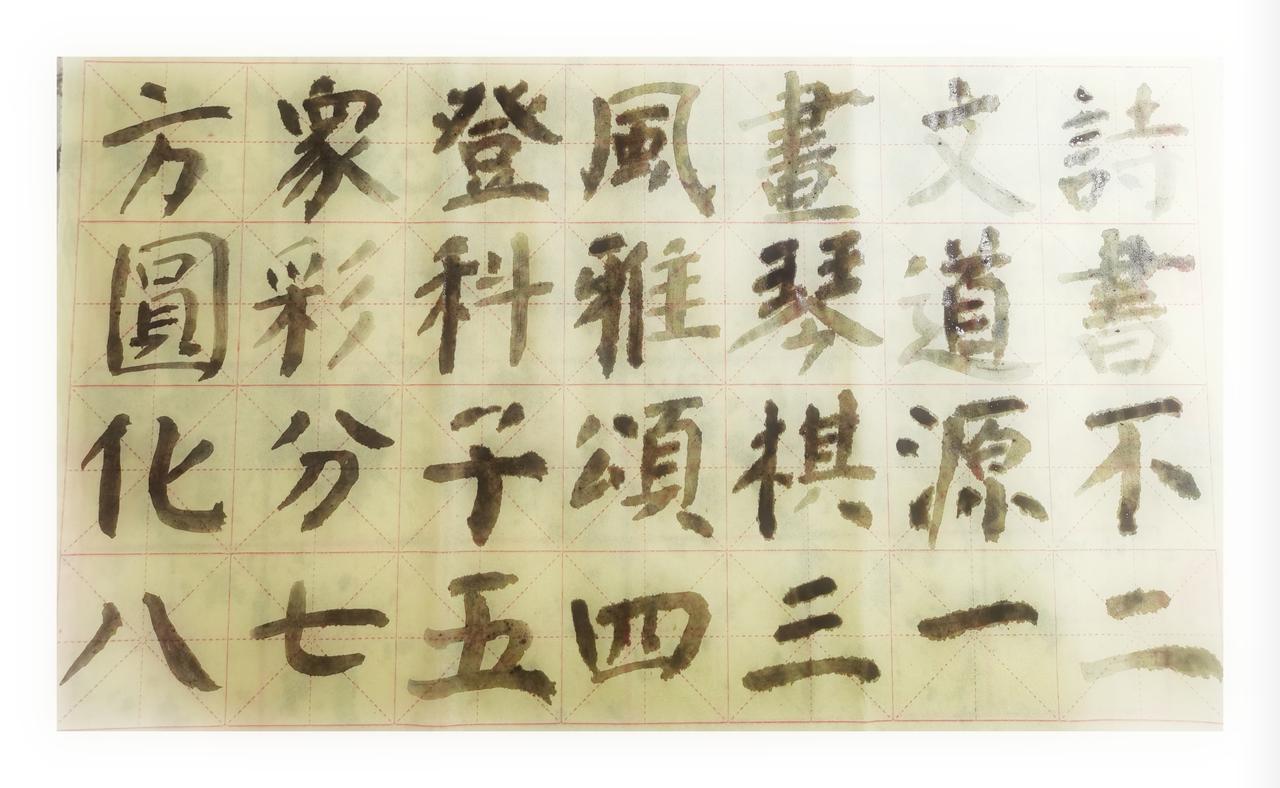 詩書不二
文道源一
畫琴棋三
風雅頌四
登科子五
眾彩分七
方圓化八